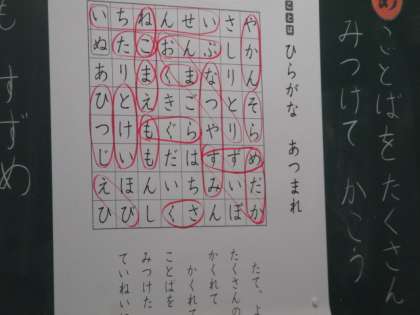 め
ことばをたくさん
みつけて かこう
ことば
ひらがな あつまれ
やかんそらめだか
さしりとりずいぼ
いぶなつやすみん
せんまごらはちさ
んおくきぐだいく
ねこまえももんし
ちたりとけいほび
いぬあひつじえひ
たて、よ
たくさんの
かくれて
かくれて
ことばを
みつけた
ていねいに
も すずめ